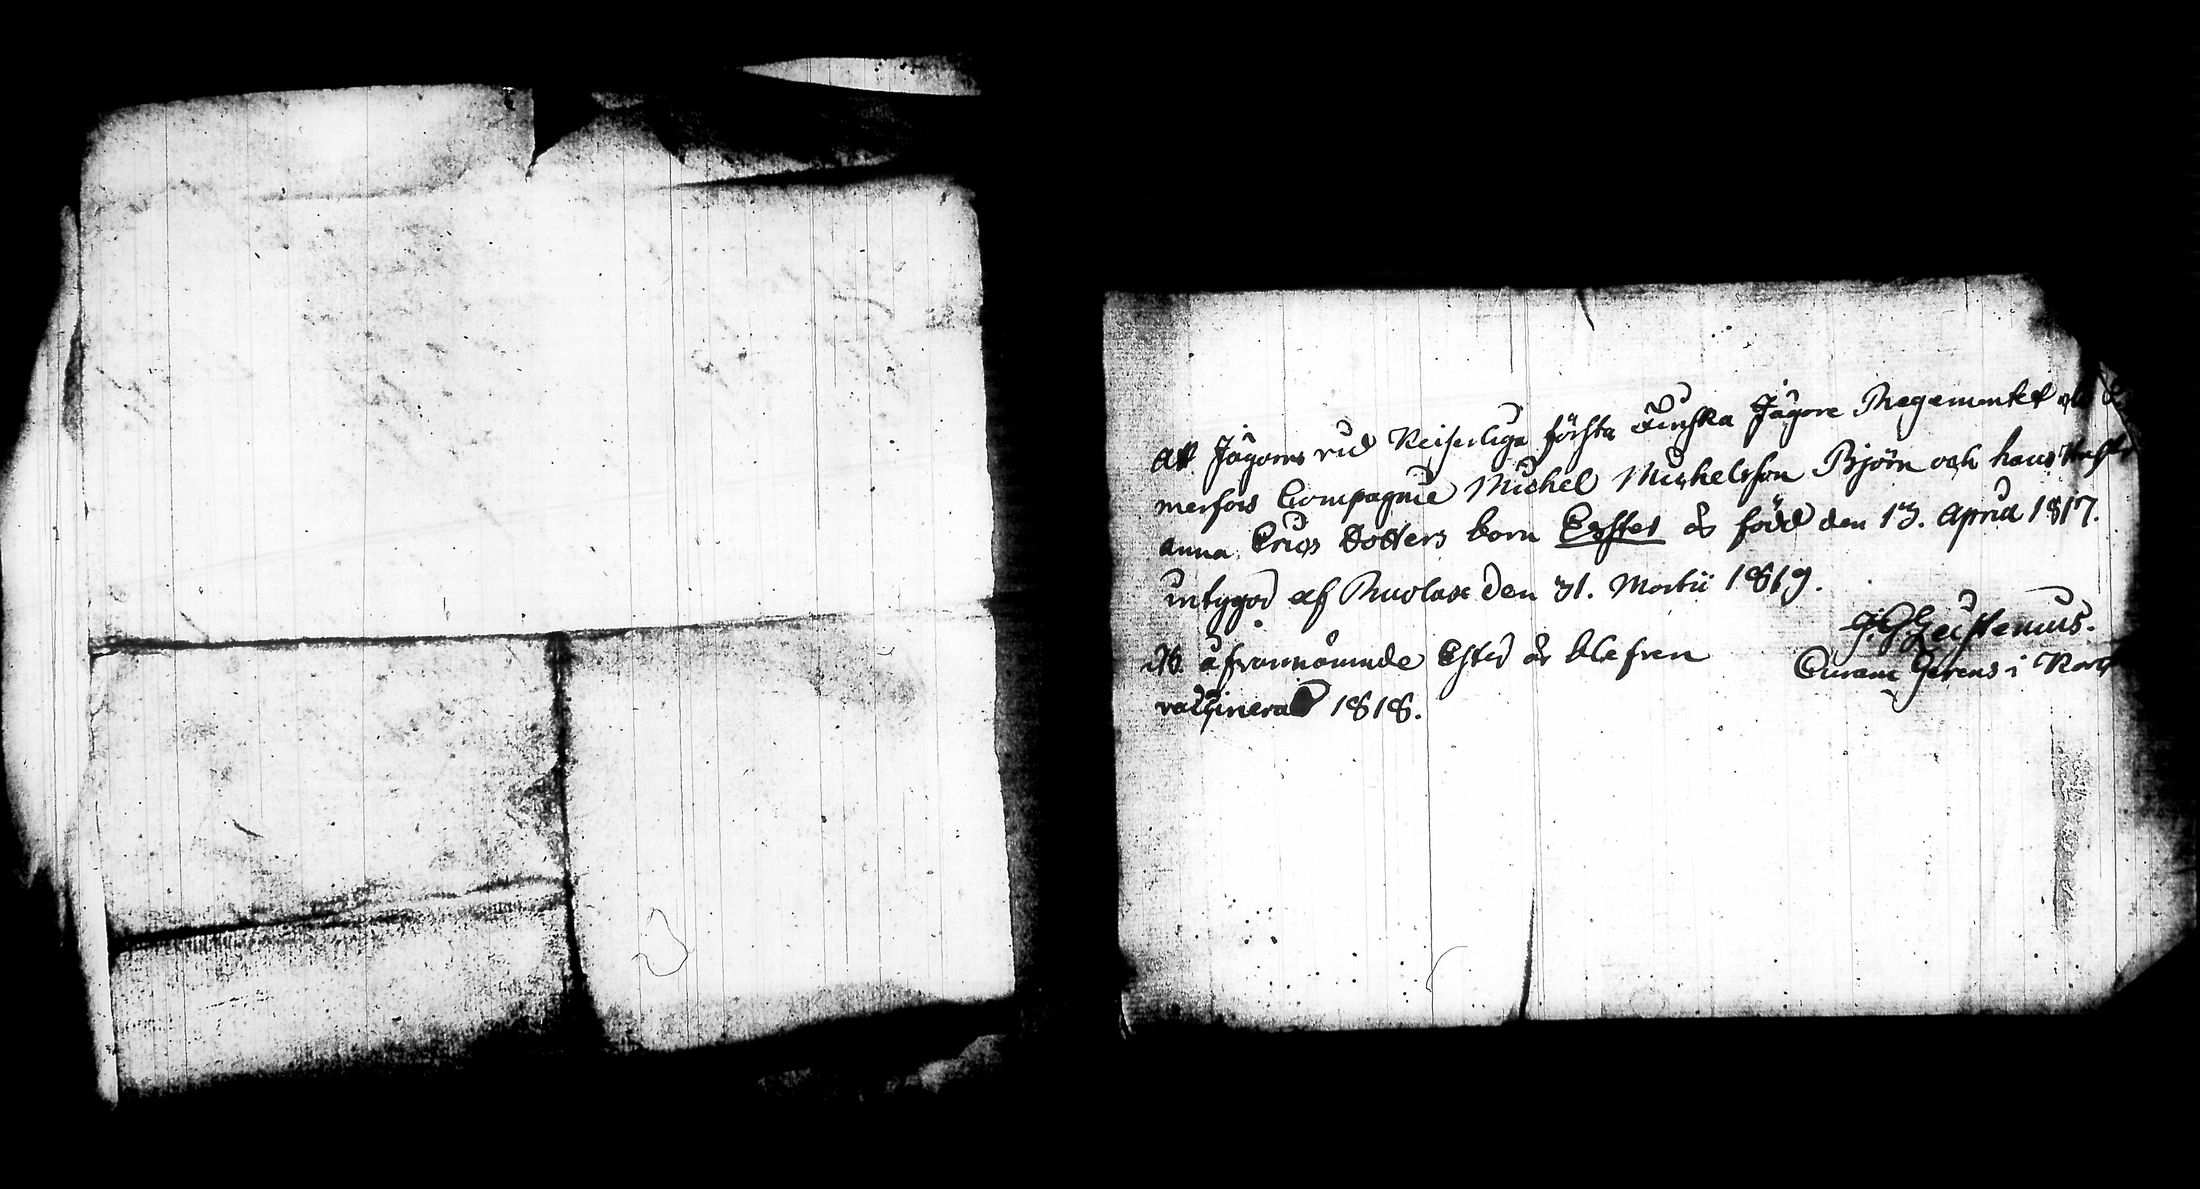 att Jägorns vid Keiserliga första Finska Jägore Regementet och
merfors Compagnie Michel Michelsson Björn och hans Hustr
anna Erics Dotters barn Esster är född den 13. April 1817.
intygad af Ruvlax den 31. Martii 1819.
J. G. Zeistenius.
Curam Gerens i
At åfvannämnde Ester är blefven
vaccinerad 1818.